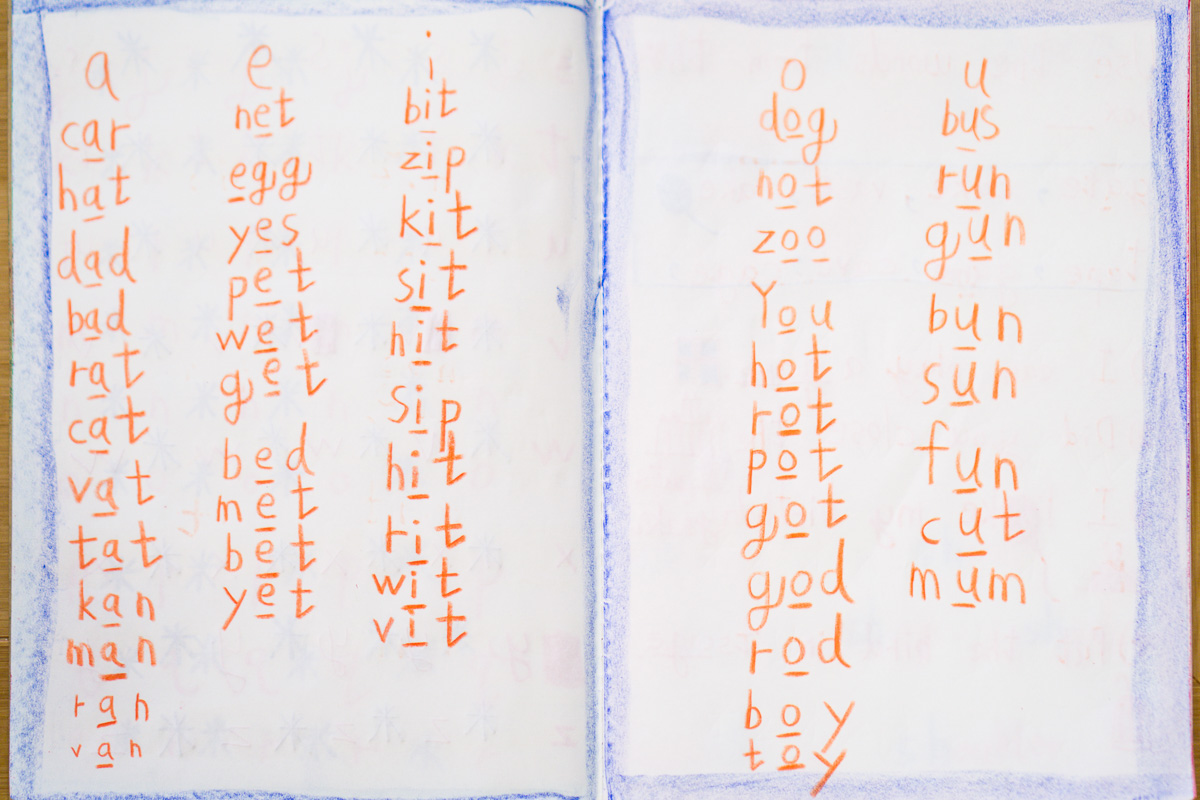 a
car
hat
dad
bad
rat
cat
vat
tat
kan
man
ran
van
e
net
egg
yes
pet
wet
get
bed
met
bet
yet
i
bit
zip
kit
sit
hit
sip
hit
rit
wit
vit
o
dog
not
zoo
You
hot
rot
pot
got
god
rod
boy
toy
u
bus
run
gun
bun
sun
fun
cut
mum